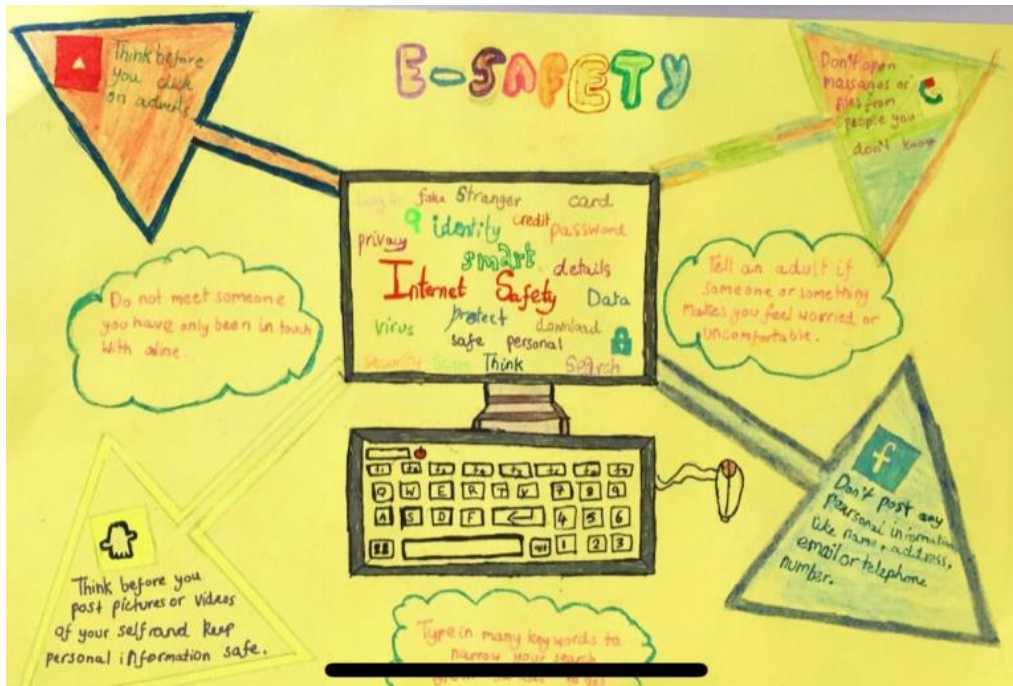 E-SAFETY
Think before
you click
on adverts
Don't open
massages or
files from
people you
don't know
Log in fake Stranger card
identity credit password
privacy smart details
Internet Safety Data
virus protect download
safe personal
security Scam Think Search
Do not meet someone
you have only been in touch
with online.
Tell an adult if
someone or something
makes you feel worried or
uncomfortable.
Q W E R T Y 7 8 9
A S D F 4 5 6
1 2 3
f
Don't post any
personal information
like name, address,
email or telephone
number.
Think before you
post pictures or videos
of your self and keep
personal information safe.
Type in many keywords to
narrow your search